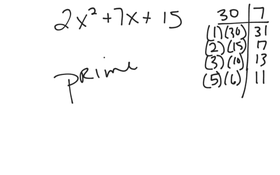 2x² + 7x + 15
prime
30 | 7
(1)(30) | 31
(2)(15) | 17
(3)(10) | 13
(5)(6) | 11